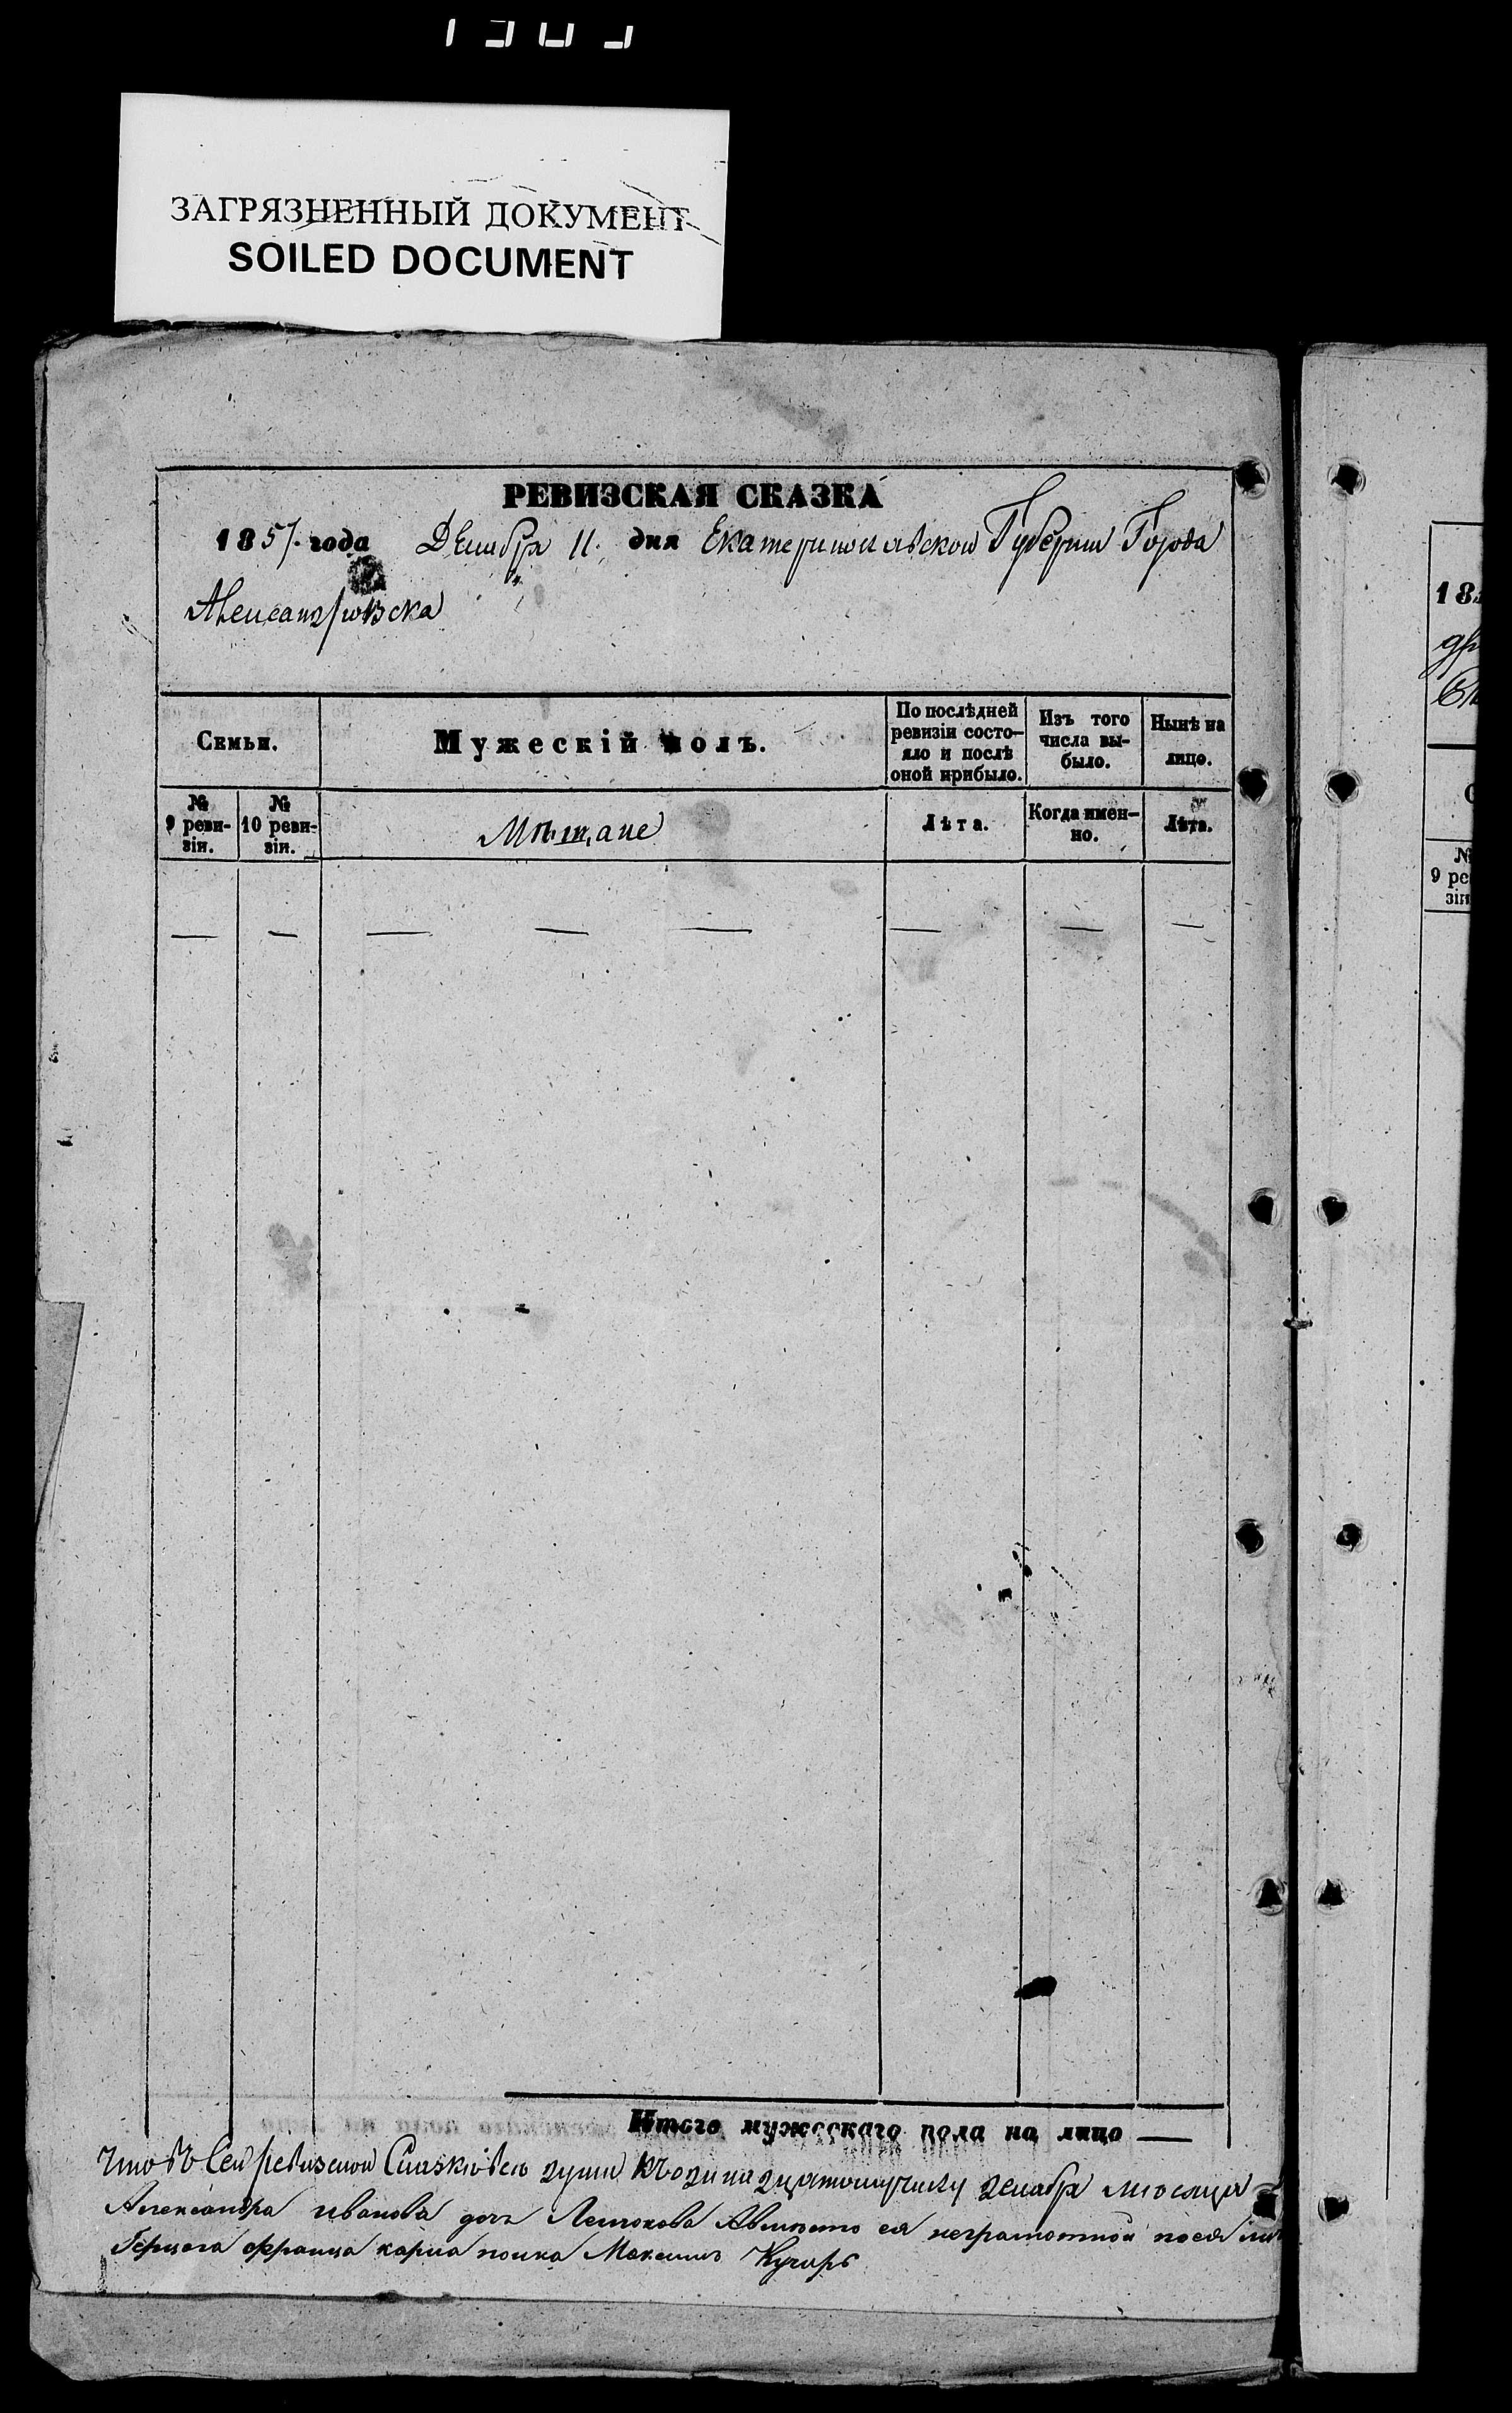 ЗАГРЯЗНЕННЫЙ ДОКУМЕНТ
SOILED DOCUMENT
РЕВИЗСКАЯ СКАЗКА
1857. года Декабря 11. дня Екатеринославской Губернии Города
Александровска
Семьи.
Мужескій полъ.
По послѣдней
ревизіи состо-
яло и послѣ
оной прибыло.
Изъ того
числа вы-
было.
Нынѣ на
лицо.
№
9 реви-
зіи.
№
10 реви-
зіи.
Мѣщане
Лѣта.
Когда имен-
но.
Лѣта.
— — — — — — — —
Итого мужескаго пола на лицо —
Что въ Сей ревизской Сказкѣ всѣ души къ одинадцатому числу декабря мѣсяца
Александра Иванова дочь неграмотной
Герцога Франца Карла полка Максимъ Кухарь
18
др
№
9 ре
зіи